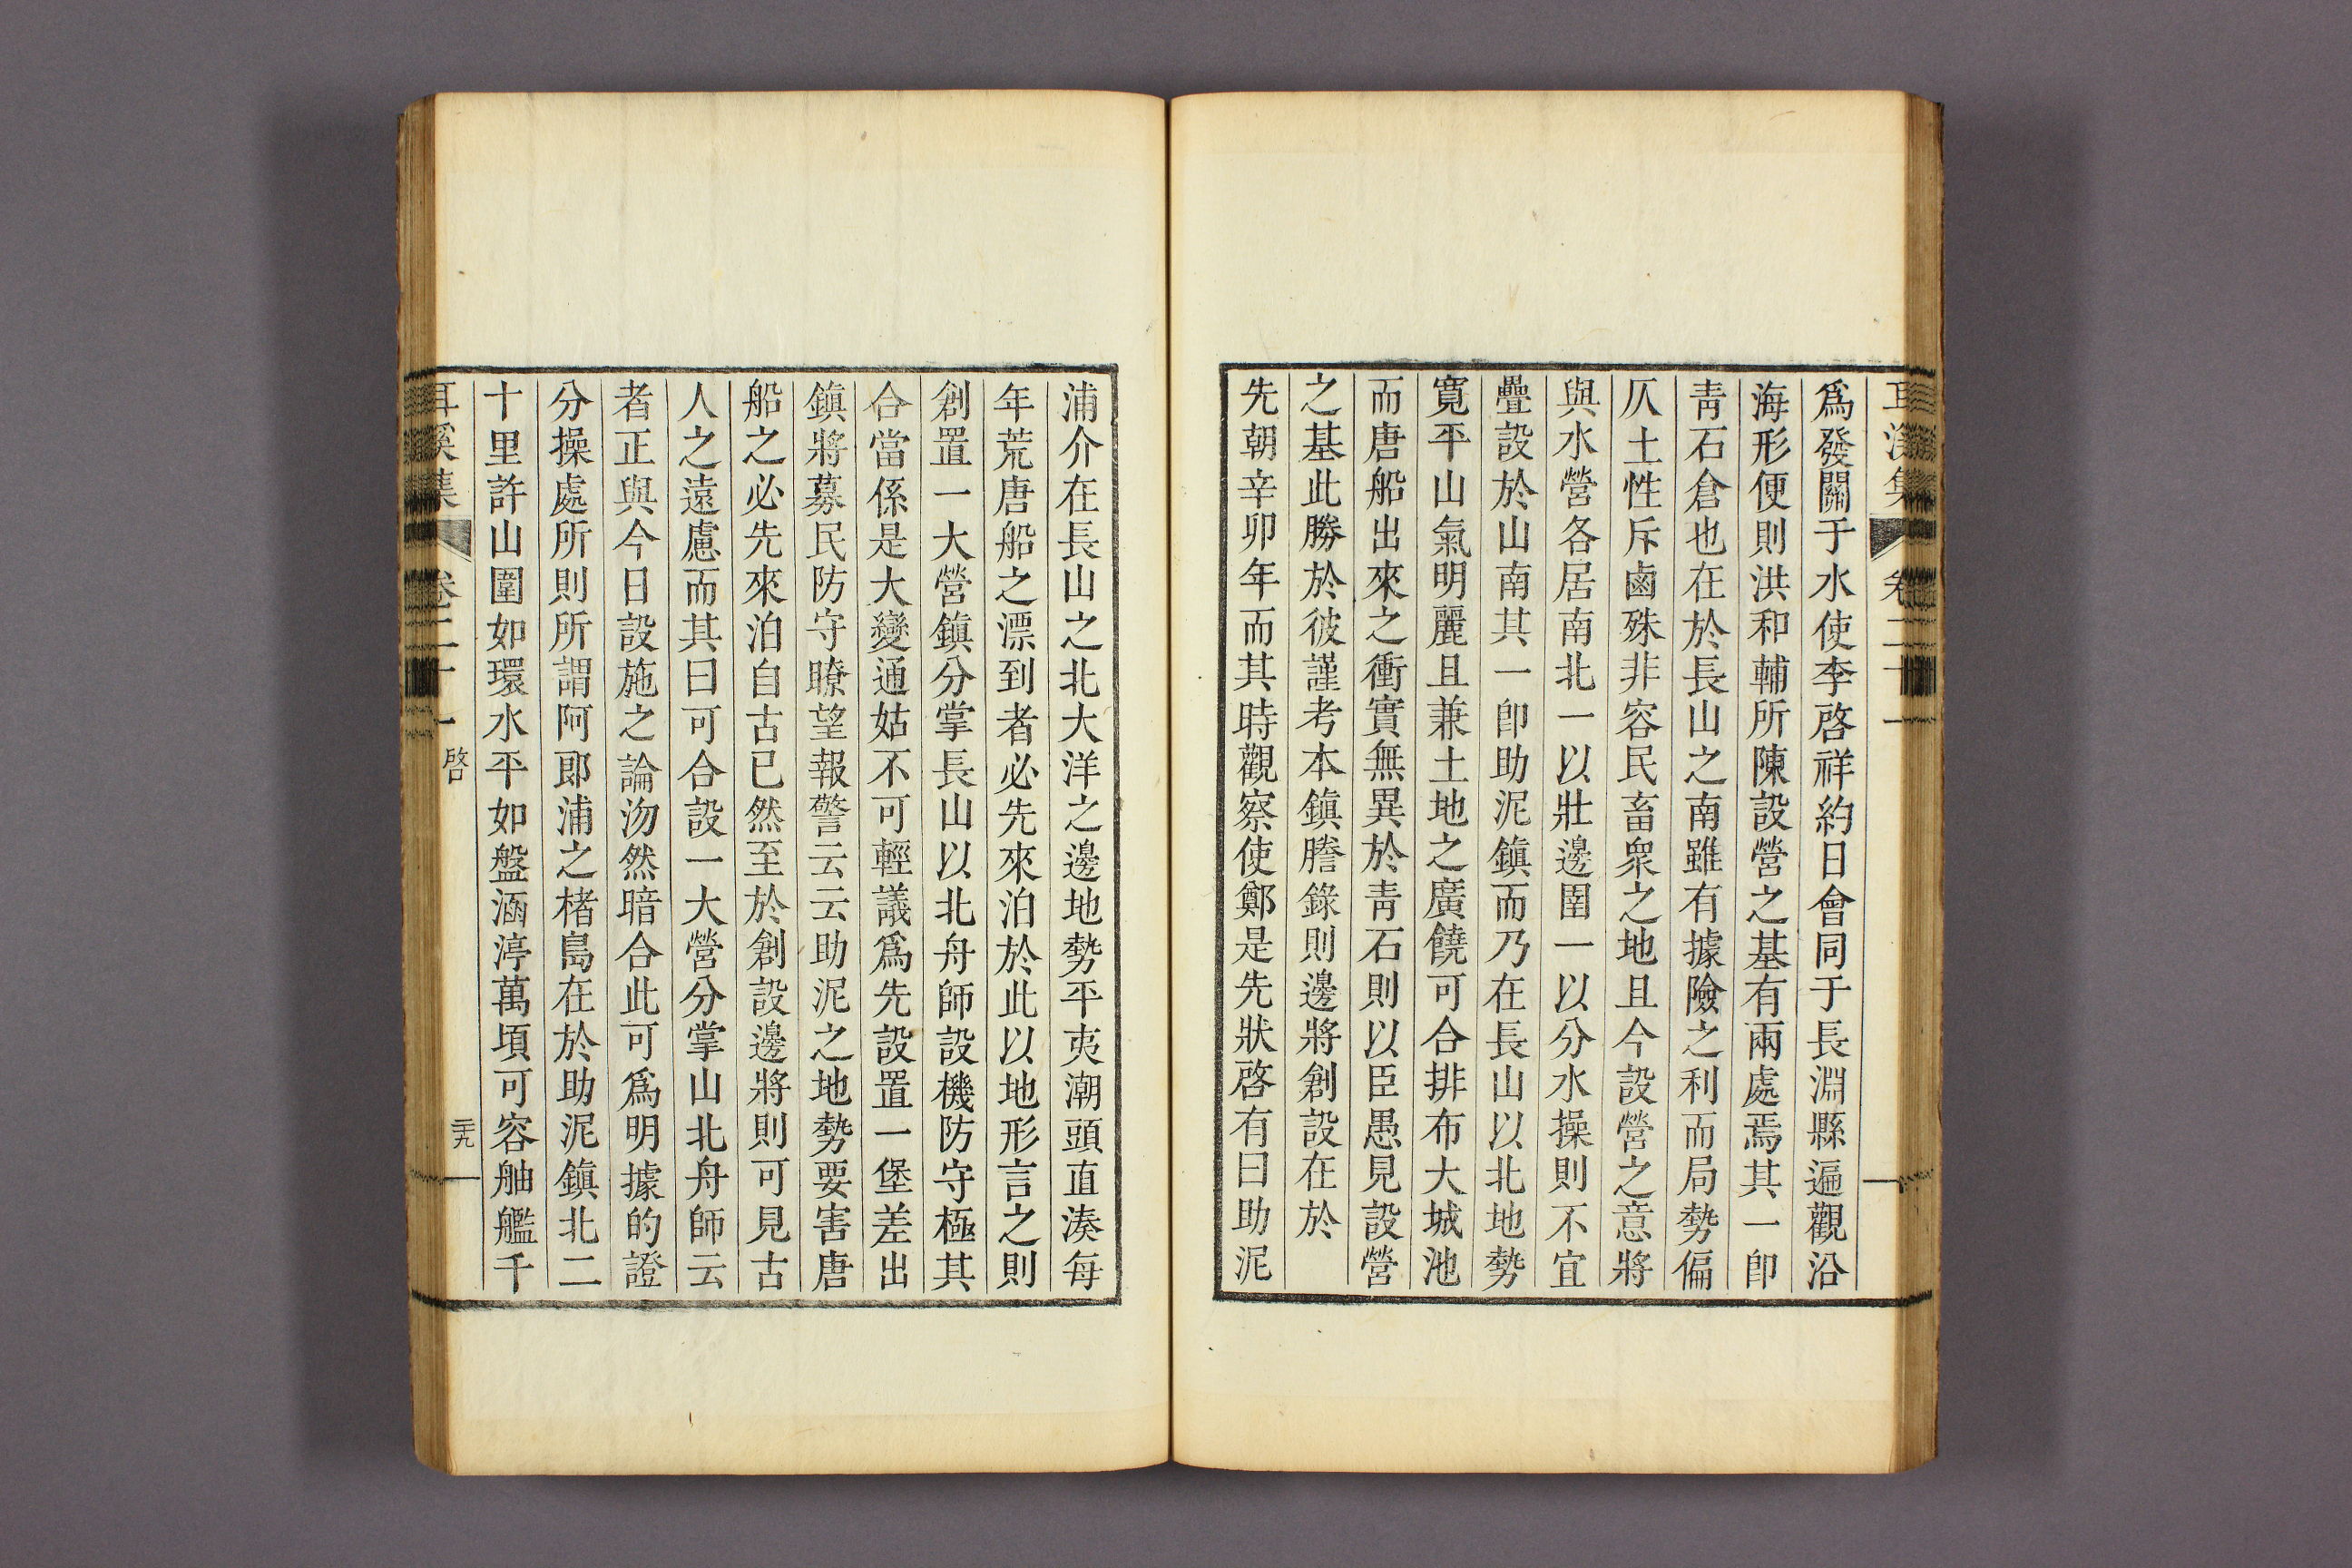 耳溪集 卷二十一
爲發關于水使李啓祥約日會同于長淵縣遍觀沿
海形便則洪和輔所陳設營之基有兩處焉其一卽
靑石倉也在於長山之南雖有據險之利而局勢偏
仄土性斥鹵殊非容民畜衆之地且今設營之意將
與水營各居南北一以壯邊圉一以分水操則不宜
疊設於山南其一卽助泥鎭而乃在長山以北地勢
寬平山氣明麗且兼土地之廣饒可合排布大城池
而唐船出來之衝實無異於靑石則以臣愚見設營
之基此勝於彼謹考本鎭謄錄則邊將創設在於
先朝辛卯年而其時觀察使鄭是先狀啓有曰助泥
浦介在長山之北大洋之邊地勢平夷潮頭直湊每
年荒唐船之漂到者必先來泊於此以地形言之則
創置一大營鎭分掌長山以北舟師設機防守極其
合當係是大變通姑不可輕議爲先設置一堡差出
鎭將募民防守瞭望報警云云助泥之地勢要害唐
船之必先來泊自古已然至於創設邊將則可見古
人之遠慮而其曰可合設一大營分掌山北舟師云
者正與今日設施之論沕然暗合此可爲明據的證
分操處所則所謂阿郞浦之楮島在於助泥鎭北二
十里許山圍如環水平如盤涵渟萬頃可容舳艦千
耳溪集 卷二十一 啓 三十九